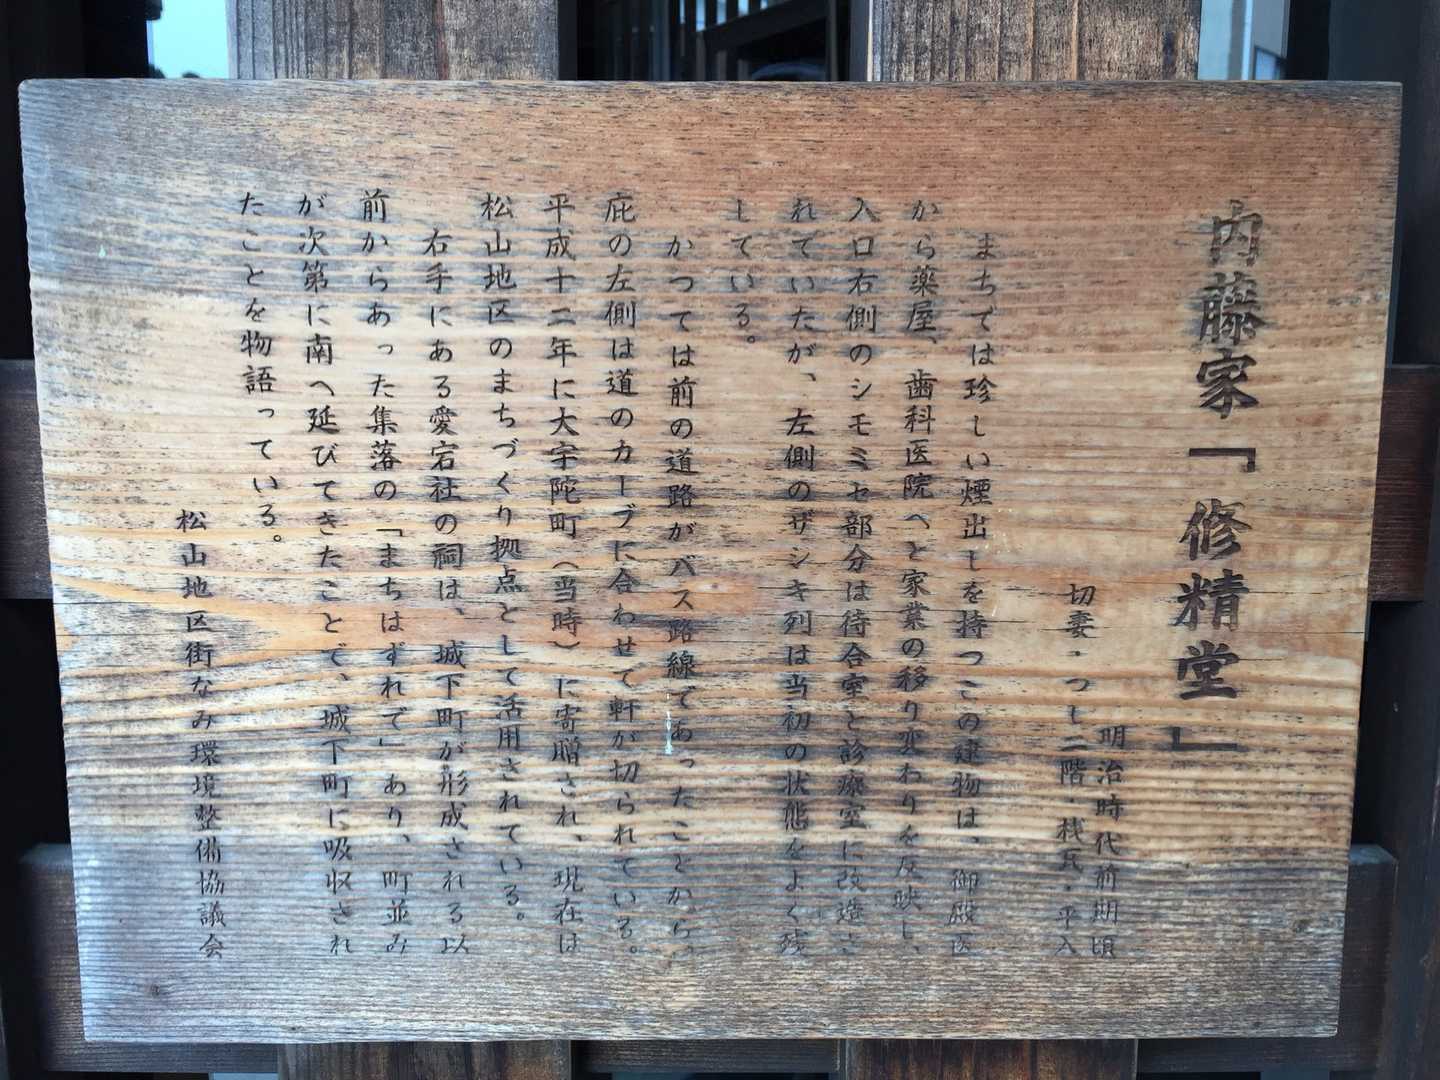 内藤家「修精堂」
明治時代前期頃
切妻・つし二階・桟瓦・平入
まちでは珍しい煙出しを持つこの建物は、御殿医
から薬屋、歯科医院へと家業の移り変わりを反映し、
入口右側のシモミセ部分は待合室と診療室に改造さ
れていたが、左側のザシキ列は当初の状態をよく残
している。
かつては前の道路がバス路線であったことから、
庇の左側は道のカーブに合わせて軒が切られている。
平成十二年に大宇陀町（当時）に寄贈され、現在は
松山地区のまちづくり拠点として活用されている。
右手にある愛宕社の祠は、城下町が形成される以
前からあった集落の「まちはずれで」あり、町並み
が次第に南へ延びてきたことで、城下町に吸収され
たことを物語っている。
松山地区街なみ環境整備協議会